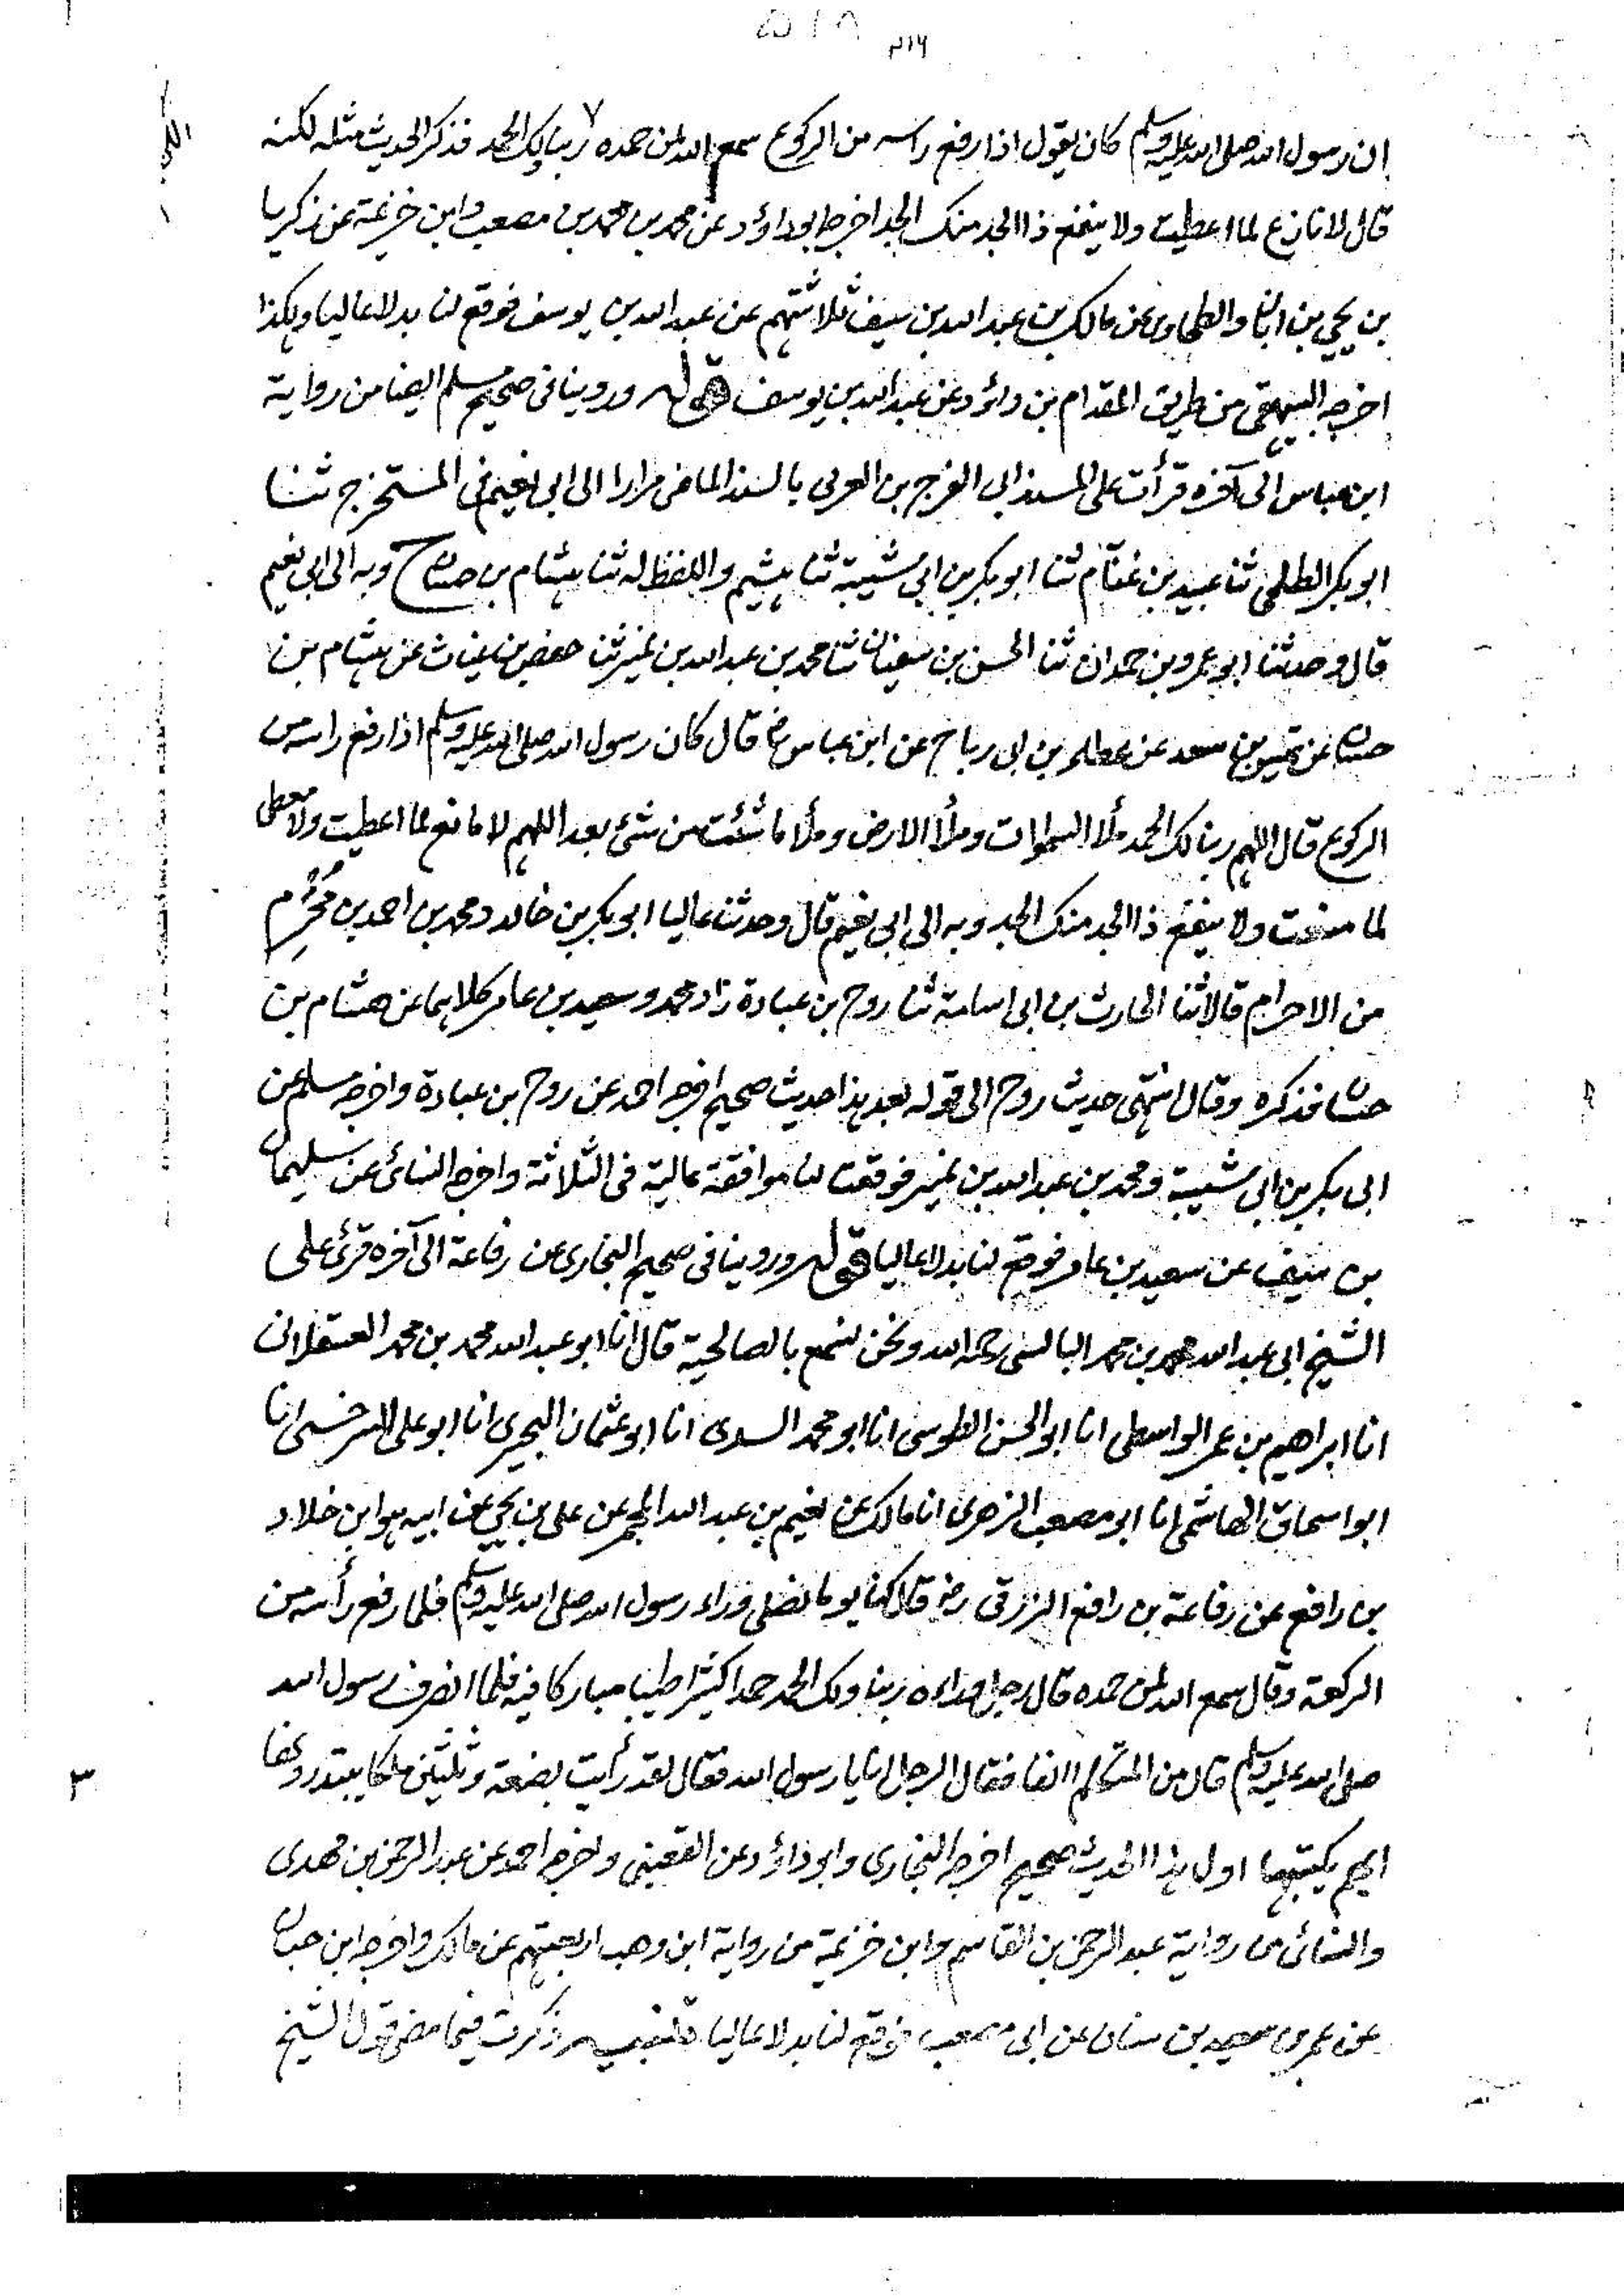 ٢١٧
ان رسول الله صلى الله عليه وسلم كان يقول اذا رفع راسه من الركوع سمع الله لمن حمده ربنا ولك الحمد فذكر الحديث مثله لكنه
اللهم
قال لا نازع لما اعطيت ولا ينفع ذا الجد منك الجد اخرجه ابوداؤد عن محمد بن محمد بن مصعب وابن خزيمة عن زكريا
بن يحيى بن ابان والطحاوى عن مالك بن عبد الله بن سيف ثلاثتهم عن عبد الله بن يوسف فوقع لنا بدلا عاليا وهكذا
اخرجه البيهقى من طريق المقدام بن داؤد عن عبد الله بن يوسف قوله وروينا فى صحيح مسلم ايضا من رواية
ابن عباس الى آخره قرأت على المسند ابى الفرج بن العربى بالسند الماضى مرارا الى ابى نعيم فى المستخرج ثنا
ابو بكر الطلحى ثنا عبيد بن غنام ثنا ابو بكر بن ابى شيبة ثنا هشيم واللفظ له ثنا هشام بن حسان ح وبه الى ابى نعيم
قال وحدثنا ابو عمرو بن حمدان ثنا الحسن بن سفيان ثنا محمد بن عبد الله بن نمير ثنا حفص بن غياث عن هشام بن
حسان عن قيس بن سعد عن عطاء بن ابى رباح عن ابن عباس رض قال كان رسول الله صلى الله عليه وسلم اذا رفع راسه من
الركوع قال اللهم ربنا لك الحمد ملأ السموات وملأ الارض وملأ ما شئت من شئ بعد اللهم لا مانع لما اعطيت ولا معطى
لما منعت ولا ينفع ذا الجد منك الجد وبه الى ابى نعيم قال وحدثنا عاليا ابو بكر بن خالد ومحمد بن احمد بن مُحْرِم
من الاحرام قالا ثنا الحارث بن ابى اسامة ثنا روح بن عبادة زاد محمد وسعيد بن عامر كلاهما عن هشام بن
حسان فذكره وقال انتهى حديث روح الى قوله بعد هذا حديث صحيح اخرجه احمد عن روح بن عبادة واخرجه مسلم عن
ابى بكر بن ابى شيبة ومحمد بن عبد الله بن نمير فوقعت لنا موافقة عالية فى الثلاثة واخرجه النسائى عن سليمان
بن سيف عن سعيد بن عامر فوقع لنا بدلا عاليا قوله وروينا فى صحيح البخارى عن رفاعة الى آخره قرئ على
الشيخ ابى عبد الله محمد بن محمد البالسى رحمه الله ونحن نسمع بالصالحية قال انا ابو عبد الله محمد بن محمد العسقلانى
انا ابراهيم بن عمر الواسطى انا ابو الحسن الطوسى انا ابو محمد السيدى انا ابو عثمان البحيرى انا ابو على السرخسى انا
ابو اسحاق الهاشمى انا ابو مصعب الزهرى انا مالك عن نعيم بن عبد الله المجمر عن على بن يحيى عن ابيه هو ابن خلاد
بن رافع عن رفاعة بن رافع الزرقى رض قال كنا يوما نصلى وراء رسول الله صلى الله عليه وسلم فلما رفع رأسه من
الركعة وقال سمع الله لمن حمده قال رجل وراءه ربنا ولك الحمد حمدا كثيرا طيبا مباركا فيه فلما انصرف رسول الله
صلى الله عليه وسلم قال من المتكلم انفا فقال الرجل انا يا رسول الله فقال لقد رأيت بضعة وثلثين ملكا يبتدرونها
٣
ايهم يكتبها اول هذا الحديث صحيح اخرجه البخارى وابو داؤد عن القعنبى واخرجه احمد عن عبد الرحمن بن مهدى
والنسائى من رواية عبد الرحمن بن القاسم وابن خزيمة من رواية ابن وهب اربعتهم عن مالك واخرجه ابن حبان
عن عمر بن سعيد بن سنان عن ابى مصعب فوقع لنا بدلا عاليا تنبيه ذكرت فيما مضى قول الشيخ